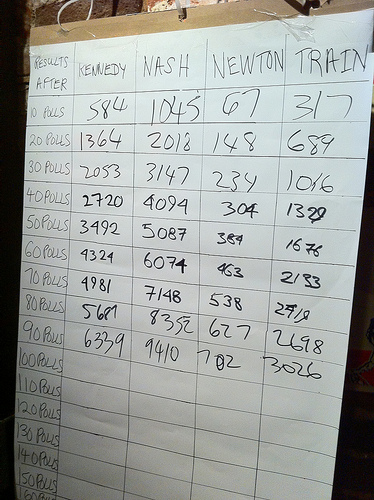 RESULTS AFTER KENNEDY NASH NEWTON TRAIN
10 POLLS 584 1045 67 317
20 POLLS 1364 2018 148 689
30 POLLS 2053 3147 234 1016
40 POLLS 2720 4094 304 1329
50 POLLS 3492 5087 384 1676
60 POLLS 4324 6074 463 2133
70 POLLS 4981 7148 538
80 POLLS 5687 8352 627 2698
90 POLLS 6339 9410 702 3026
100 POLLS
110 POLLS
120 POLLS
130 POLLS
140 POLLS
150 POLLS